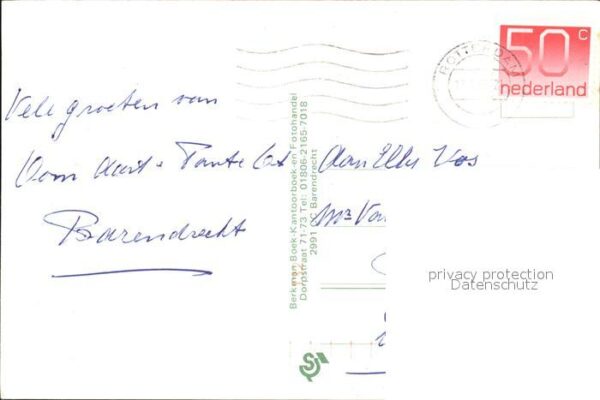 Vele groeten van
Oom Aart + Tante Cat
Barendrecht
Berkman Boek-Kantoorboek-en Fotohandel
Dorpstraat 71-73 Tel: 01806-2165-7018
2991 Barendrecht
ROTTERDAM
50 c
nederland
Aan Elly Vos
privacy protection
Datenschutz